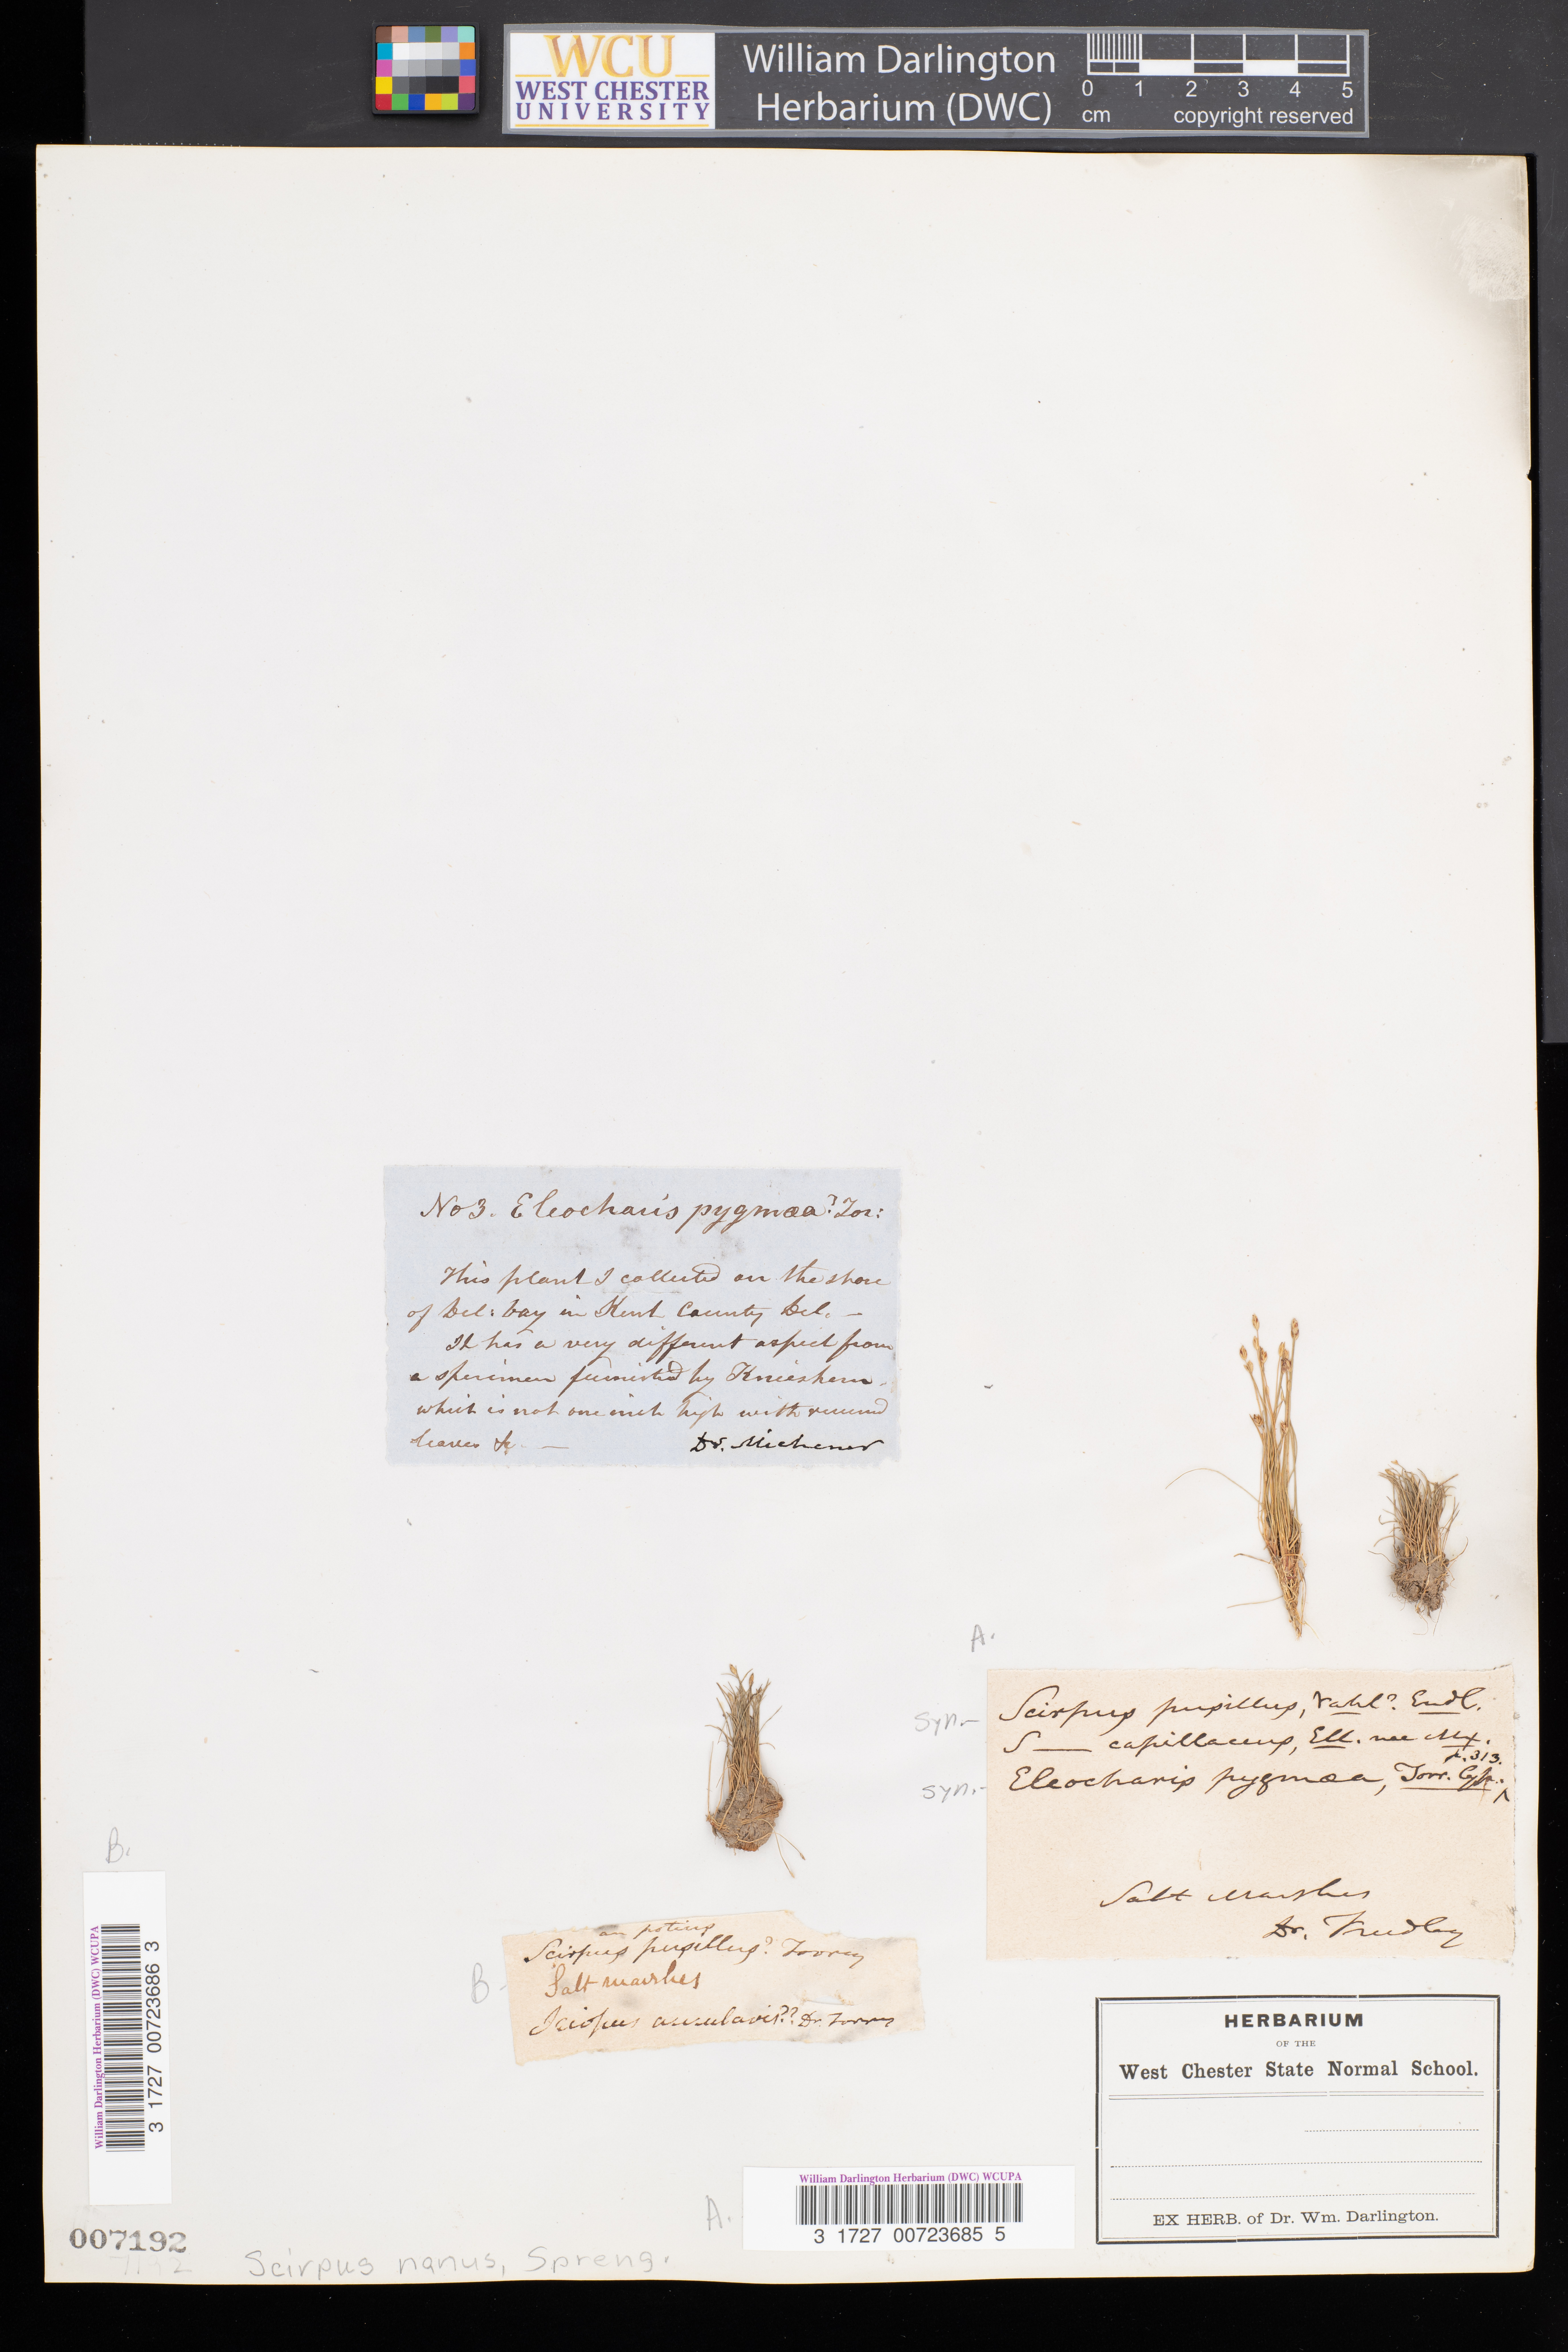 WCU
WEST CHESTER
UNIVERSITY
William Darlington
Herbarium (DWC)
0 1 2 3 4 5
cm copyright reserved
No 3. Eleocharis pygmæa? Tor:
This plant I collected on the shore
of Del: bay in Kent County Del. —
It has a very different aspect from
a specimen furnished by Knieskern,
which is not one inch high with
leaves &c. — Dr. Michener
A.
syn.- Scirpus pusillus, Vahl? Endl.
S — capillaceus, Ell. nec Mx.
p. 313.
syn.- Eleocharis pygmæa, Torr. Cyp. ^
Salt Marshes
Dr.
B.
an potius
B- Scirpus pusillus? Torrey
Salt marshes
Scirpus ?? Dr. Torrey
HERBARIUM
OF THE
West Chester State Normal School.
EX HERB. of Dr. Wm. Darlington.
William Darlington Herbarium (DWC) WCUPA
3 1727 00723686 3
A.
William Darlington Herbarium (DWC) WCUPA
3 1727 00723685 5
007192
7192
Scirpus nanus, Spreng.